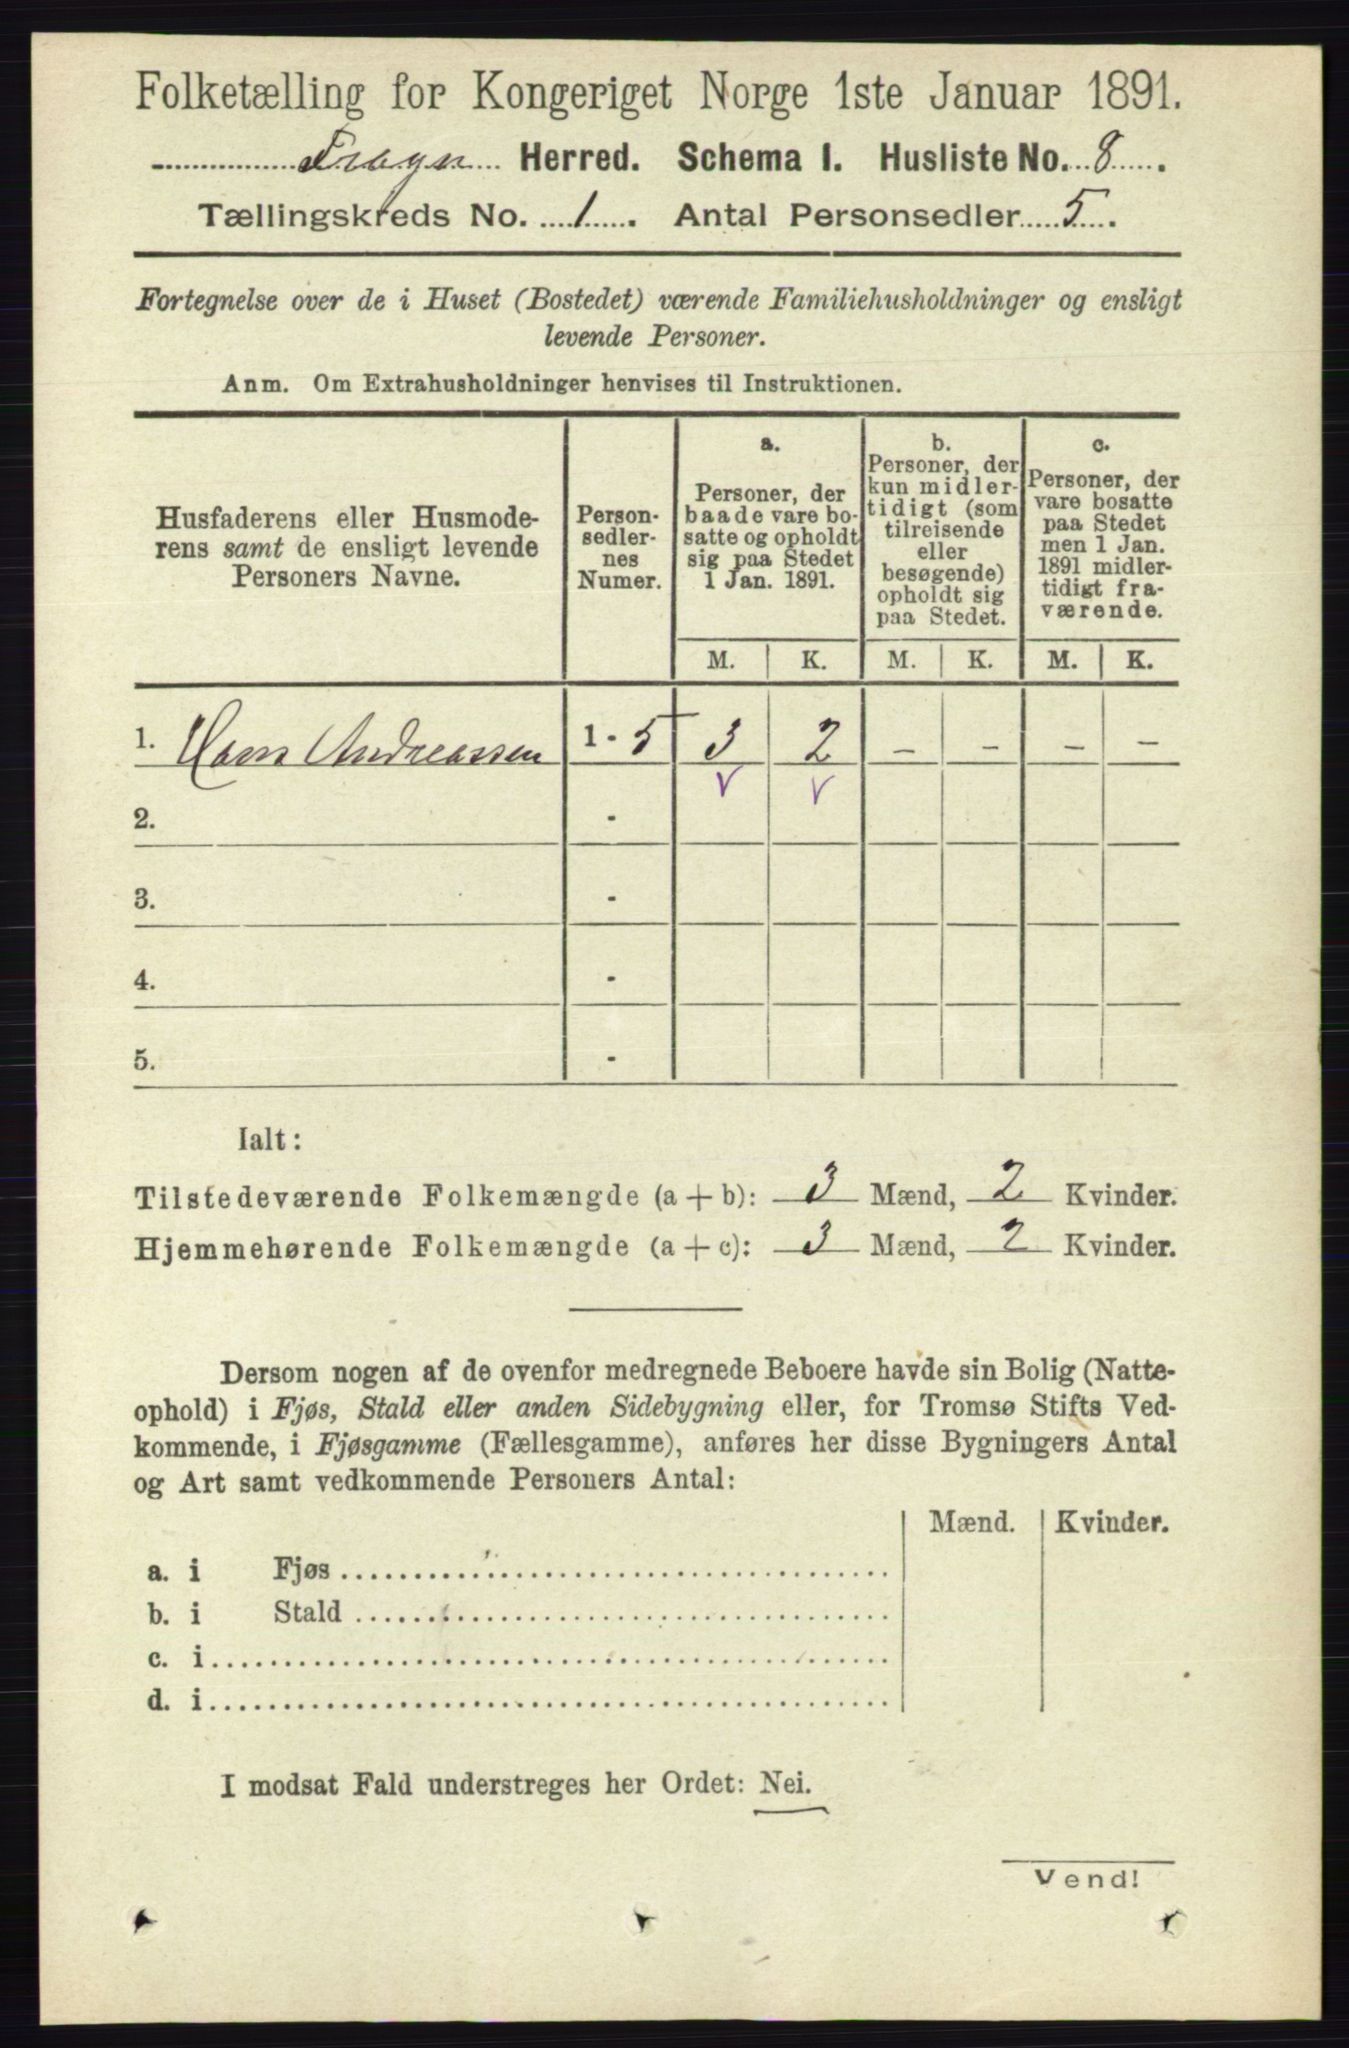 Folketælling for Kongeriget Norge 1ste Januar 1891.
Frogn Herred. Schema I. Husliste No. 8.
Tællingskreds No. 1. Antal Personsedler 5.
Fortegnelse over de i Huset (Bostedet) værende Familiehusholdninger og ensligt
levende Personer.
Anm. Om Extrahusholdninger henvises til Instruktionen.
Husfaderens eller Husmode-
rens samt de ensligt levende
Personers Navne.
Person-
sedler-
nes
Numer.
a.
Personer, der
baade vare bo-
satte og opholdt
sig paa Stedet
1 Jan. 1891.
b.
Personer, der
kun midler-
tidigt (som
tilreisende
eller
besøgende)
opholdt sig
paa Stedet.
c.
Personer, der
vare bosatte
paa Stedet
men 1 Jan.
1891 midler-
tidigt fra-
værende.
M. K. M. K. M. K.
1. Hans Andreassen 1 - 5 3 2 - - - -
2. -
3. -
4. -
5. -
Ialt:
Tilstedeværende Folkemængde (a + b): 3 Mænd, 2 Kvinder.
Hjemmehørende Folkemængde (a + c): 3 Mænd, 2 Kvinder.
Dersom nogen af de ovenfor medregnede Beboere havde sin Bolig (Natte-
ophold) i Fjøs, Stald eller anden Sidebygning eller, for Tromsø Stifts Ved-
kommende, i Fjøsgamme (Fællesgamme), anføres her disse Bygningers Antal
og Art samt vedkommende Personers Antal:
Mænd. Kvinder.
a. i Fjøs
b. i Stald
c. i
d. i
I modsat Fald understreges her Ordet: Nei.
Vend!